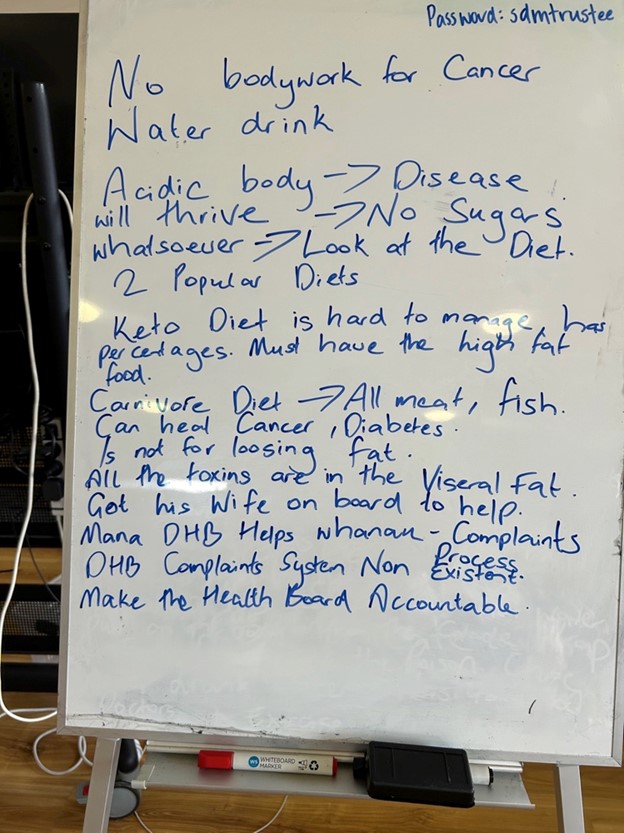 Password: sdmtrustee
No bodywork for Cancer
Water drink
Acidic body -> Disease
will thrive -> No Sugars
whatsoever -> Look at the Diet.
2 Popular Diets
Keto Diet is hard to manage, has
percentages. Must have the high fat
food.
Carnivore Diet -> All meat, fish.
Can heal Cancer, Diabetes.
Is not for loosing fat.
All the toxins are in the Viseral Fat.
Got his Wife on board to help.
Mana DHB Helps whanau - Complaints
Process
DHB Complaints System Non Existent.
Make the Health Board Accountable.
WHITEBOARD
MARKER